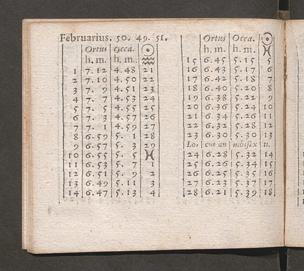 Februarius. 50. 49. 51.
Ortus Occa. ☉
h. m. h. m.
1 7. 12 4. 48 21
2 7. 10 4. 50 22
3 7. 9 4. 51 23
4 7. 7 4. 53 24
5 7. 5 4. 55 25
6 7. 3 4. 57 26
7 7. 1 4. 59 27
8 6. 59 5. 1 28
9 6. 57 5. 3 29
10 6. 55 5. 5 ♓
11 6. 53 5. 7
12 6. 51 5. 9
13 6. 49 5. 11 3
14 6. 47 5. 13 4
Ortus Occa. ☉
h. m. h. m. ♓
15 6. 45 5. 15 5
16 6. 43 5. 17 6
17 6. 42 5. 18 7
18 6. 40 5. 20 8
19 6. 38 5. 22 9
20 6. 36 5. 24 10
21 6. 34 5. 26 11
22 6. 32 5. 28 12
23 6. 30 5. 30 13
24 6. 28 5. 32 14
25 6. 26 5. 34 15
26 6. 23 5. 37 16
27 6. 22 5. 38 17
28 6. 21 5. 39 18